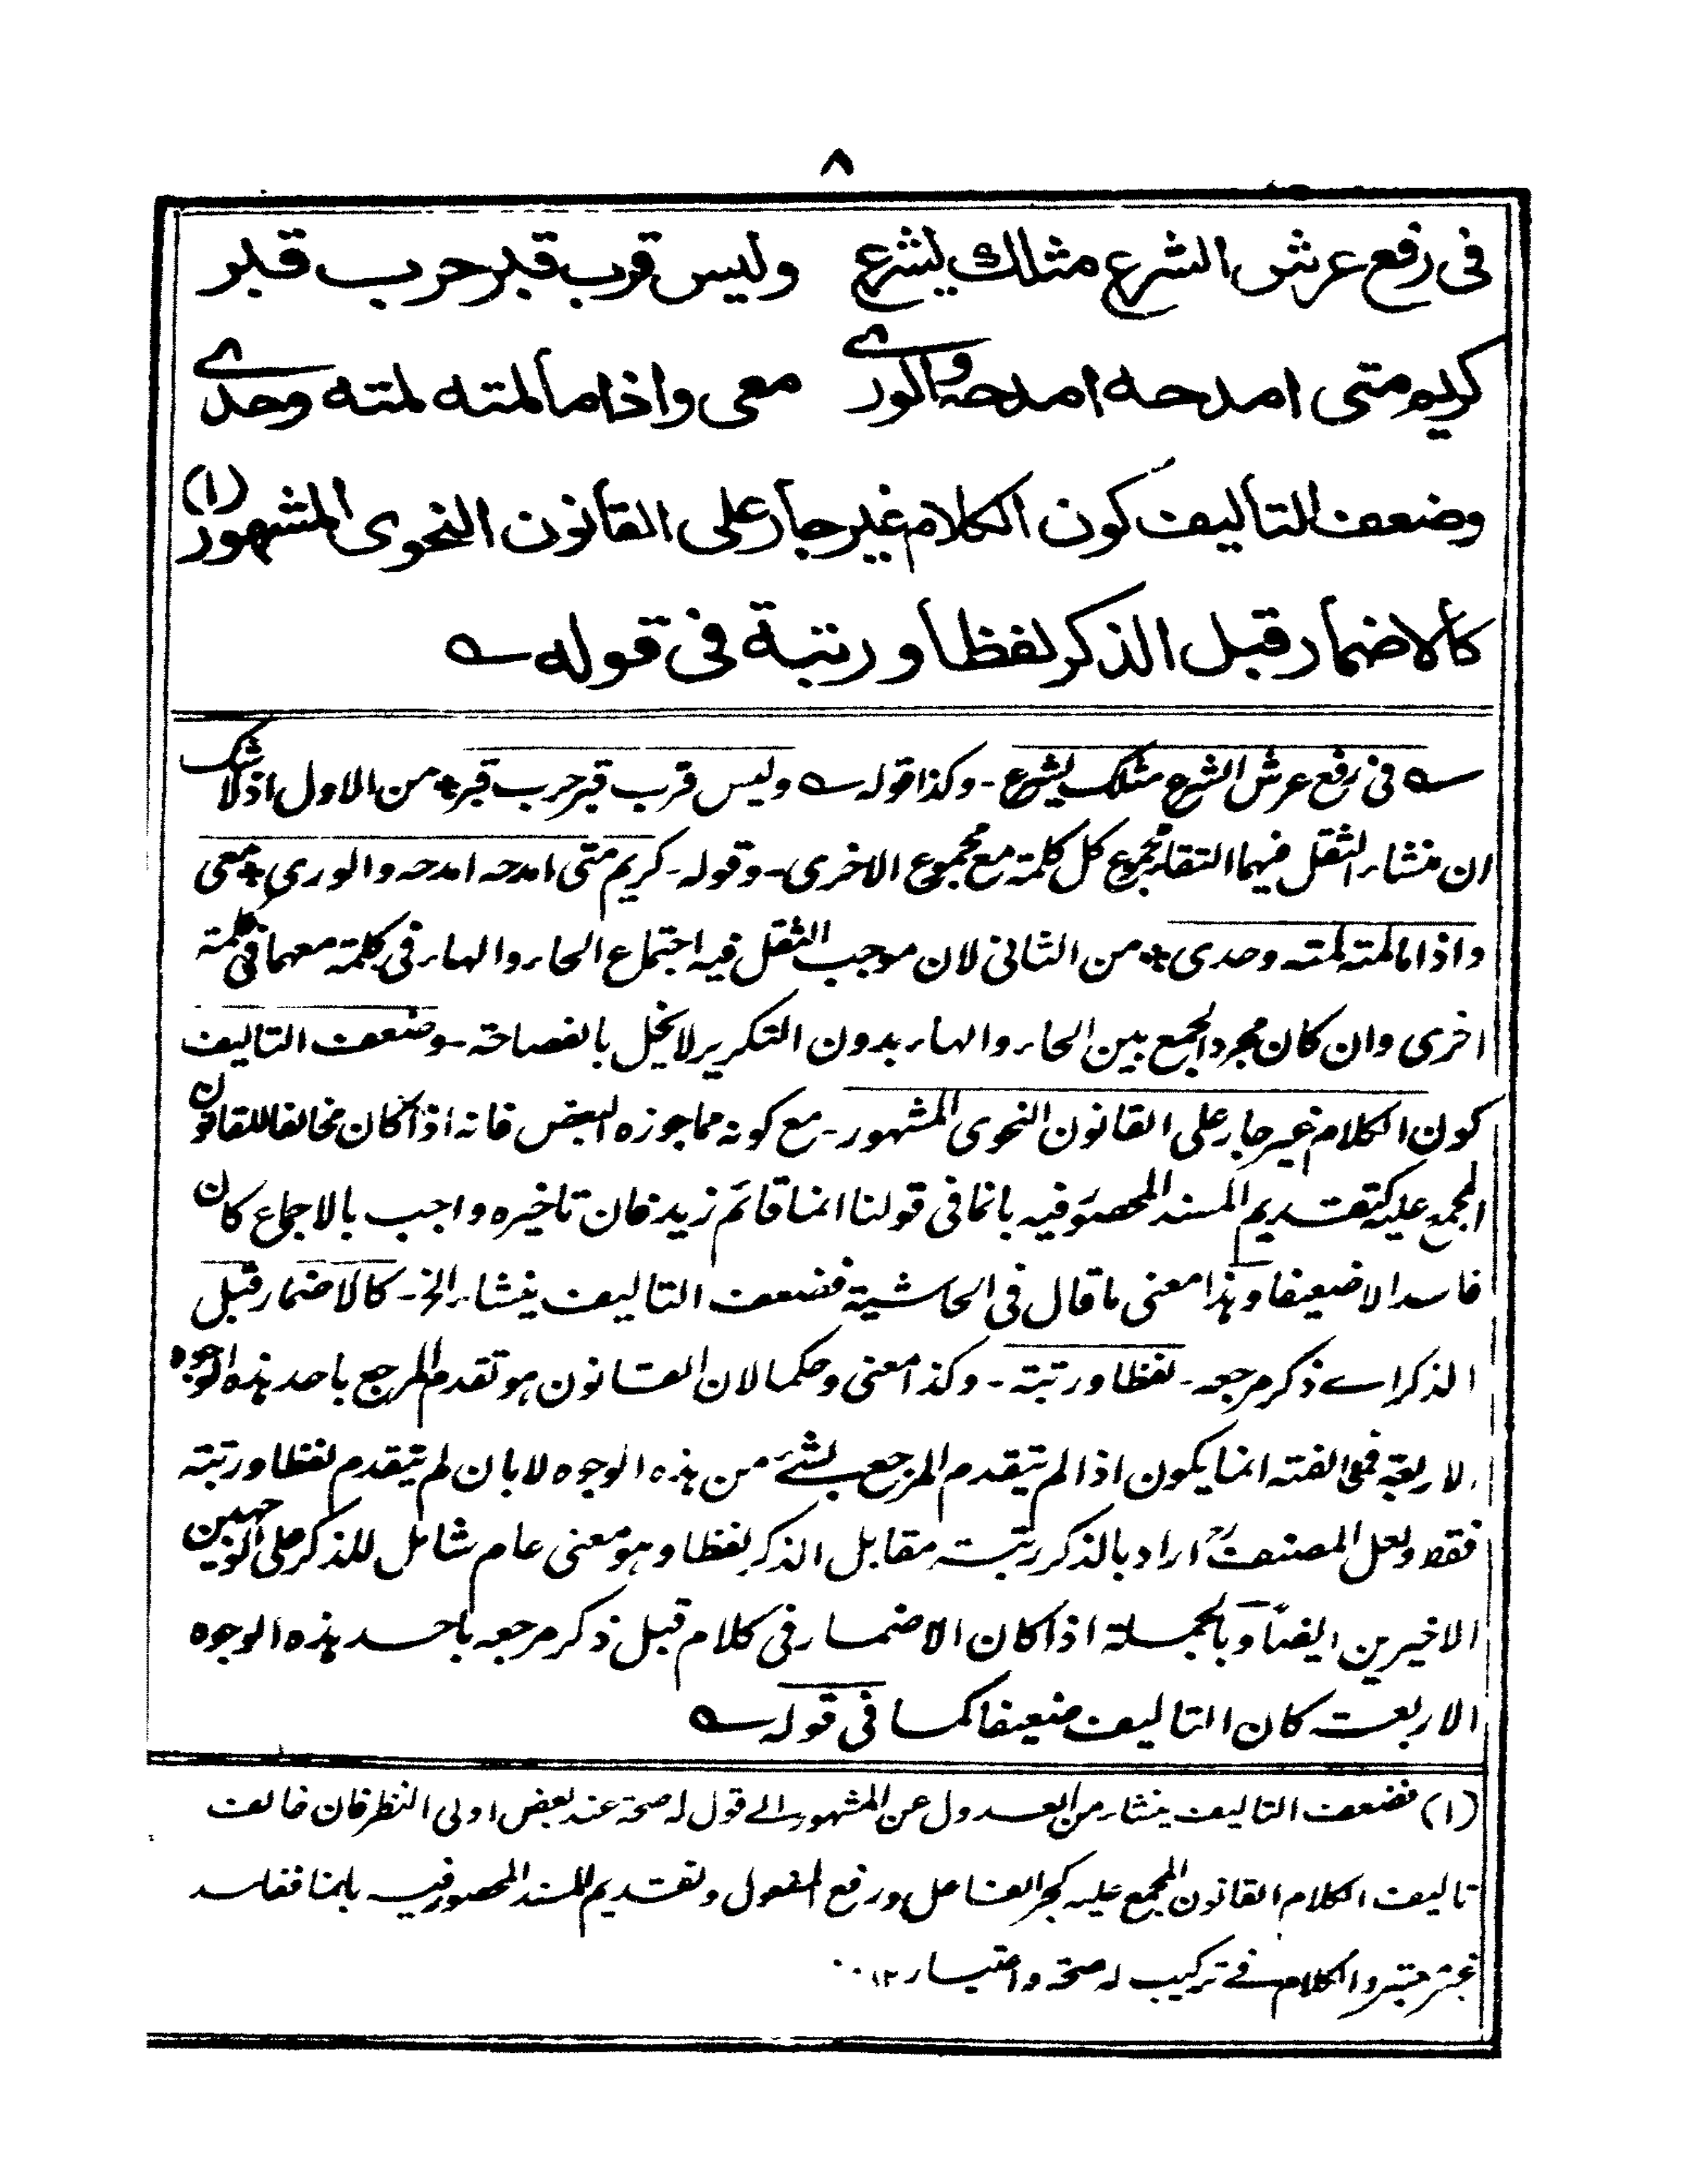 ٨
فى رفع عرش الشرع مثلك يشرع وليس قرب قبر حرب قبر
كريم متى امدحه امدحه والورى معى واذا ما لمته لمته وحدى
وضعف التأليف كون الكلام غير جار على القانون النحوى المشهور (١)
كالاضمار قبل الذكر لفظا و رتبة فى قوله
فى رفع عرش الشرع مثلك يشرع - وكذا قوله وليس قرب قبر حرب قبر * من الاول اذ لا شك
ان منشاء الثقل فيهما التقاء مجموع كل كلمة مع مجموع الاخرى - وقوله - كريم متى امدحه امدحه والورى * معى
واذا ما لمته لمته وحدى * من الثانى لان موجب الثقل فيه اجتماع الحاء والهاء فى كلمة معهما فى كلمة
اخرى وان كان مجرد الجمع بين الحاء والهاء بدون التكرير لا يخل بالفصاحة - وضعف التاليف
كون الكلام غير جار على القانون النحوى المشهور - مع كونه مما جوزه البعض فانه اذا كان مخالفا للقانون
المجمع عليه كتقديم المسند المحصور فيه بانما فى قولنا انما قائم زيد فان تاخيره واجب بالاجماع كان
فاسدا لا ضعيفا و هذا معنى ما قال فى الحاشية فضعف التاليف ينشاء الخ - كالاضمار قبل
الذكر اے ذكر مرجعه - لفظا ورتبة - وكذا معنى وحكما لان القانون هو تقدم المرجع باحد هذه الوجوه
الاربعة فمخالفته انما يكون اذا لم يتقدم المرجع بشئ من هذه الوجوه لا بان لم يتقدم لفظا ورتبة
فقط ولعل المصنفؒ اراد بالذكر رتبة مقابل الذكر لفظا وهو معنى عام شامل للذكر على الوجهين
الاخيرين ايضا وبالجملة اذا كان الاضمار فى كلام قبل ذكر مرجعه باحد هذه الوجوه
الاربعة كان التاليف ضعيفا كما فى قوله
(١) فضعف التاليف ينشاء من العدول عن المشهور الے قول له صحة عند بعض اولى النظر فان خالف
تاليف الكلام القانون المجمع عليه كجر الفاعل ورفع المفعول وتقديم المسند المحصور فيه بانما ففاسد
غير معتبر والكلام فے تركيب له صحة واعتبار ١٢